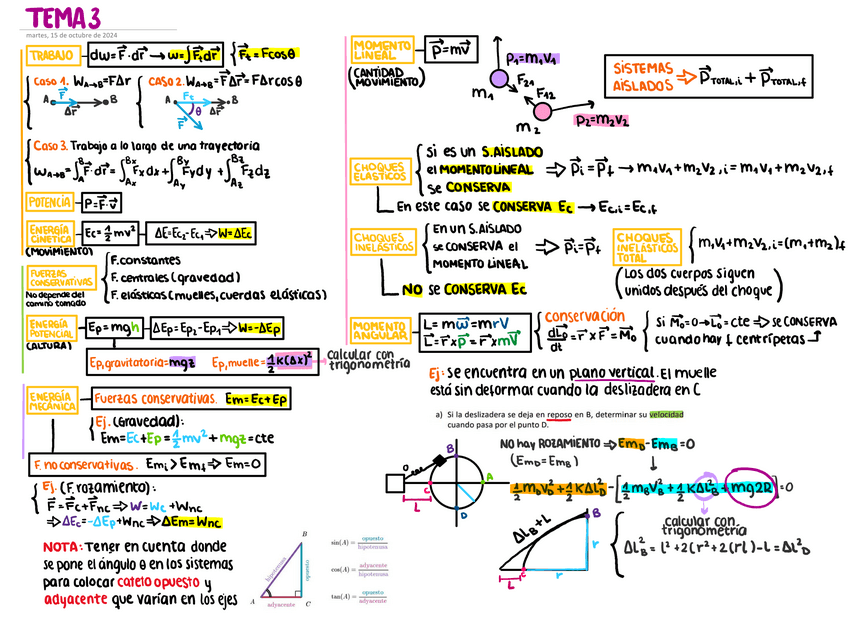 TEMA 3
martes, 15 de octubre de 2024
TRABAJO dw = F⃗·dr⃗ → w = ∫F⃗t dr⃗ { F⃗t = F cosθ
Caso 1. W_A→B = FΔr
A F⃗ Δr⃗ B
CASO 2. W_A→B = F⃗Δr⃗ = FΔr cosθ
A Ft θ F⃗ Δr⃗ B
Caso 3. Trabajo a lo largo de una trayectoria
W_A→B = ∫_A^B F⃗·dr⃗ = ∫_Ax^Bx Fx dx + ∫_Ay^By Fy dy + ∫_Az^Bz Fz dz
POTENCIA P = F⃗·v⃗
ENERGÍA CINÉTICA Ec = 1/2 mv² ΔE = Ec2 - Ec1 ⇒ W = ΔEc
(MOVIMIENTO)
FUERZAS CONSERVATIVAS
No depende del camino tomado
F. constantes
F. centrales (gravedad)
F. elásticas (muelles, cuerdas elásticas)
ENERGÍA POTENCIAL Ep = mgh ΔEp = Ep2 - Ep1 ⇒ W = -ΔEp
(ALTURA)
Ep, gravitatoria = mgz Ep, muelle = 1/2 K(Δx)² calcular con trigonometría
ENERGÍA MECÁNICA Fuerzas conservativas. Em = Ec + Ep
Ej. (Gravedad):
Em = Ec + Ep = 1/2 mv² + mgz = cte
F. no conservativas. Emi > Emf ⇒ Em = 0
Ej. (F. rozamiento):
F⃗ = Fc + Fnc ⇒ W = Wc + Wnc
⇒ ΔEc = -ΔEp + Wnc ⇒ ΔEm = Wnc
NOTA: Tener en cuenta donde
se pone el ángulo θ en los sistemas
para colocar cateto opuesto y
adyacente que varían en los ejes
B
hipotenusa
opuesto
A adyacente C
sin(A) = opuesto/hipotenusa
cos(A) = adyacente/hipotenusa
tan(A) = opuesto/adyacente
MOMENTO LINEAL P⃗ = mv⃗
(CANTIDAD MOVIMIENTO)
p1 = m1v1
m1 F21
F12
m2 p2 = m2v2
SISTEMAS AISLADOS ⇒ P⃗TOTAL,i + P⃗TOTAL,f
CHOQUES ELÁSTICOS
Si es un S. AISLADO
el MOMENTO LINEAL ⇒ P⃗i = P⃗f → m1v1 + m2v2,i = m1v1 + m2v2,f
se CONSERVA
En este caso se CONSERVA Ec → Ec,i = Ec,f
CHOQUES INELÁSTICOS
En un S. AISLADO
se CONSERVA el ⇒ P⃗i = P⃗f
MOMENTO LINEAL
NO se CONSERVA Ec
CHOQUES INELÁSTICOS TOTAL { m1v1 + m2v2,i = (m1+m2)f
(Los dos cuerpos siguen
unidos después del choque)
MOMENTO ANGULAR
L = mw⃗ = mrV
L⃗ = r⃗ x p⃗ = r⃗ x mV⃗
conservación
dL⃗o/dt = r⃗ x F⃗ = M⃗o
si M⃗o = 0 → L⃗o = cte ⇒ se CONSERVA
cuando hay f. centrípetas
Ej: Se encuentra en un plano vertical. El muelle
está sin deformar cuando la deslizadera en C
a) Si la deslizadera se deja en reposo en B, determinar su velocidad
cuando pasa por el punto D.
O B A C D L
NO hay ROZAMIENTO ⇒ EmD - EmB = 0
(EmD = EmB)
1/2 mD VD² + 1/2 KΔLD² - [1/2 mB VB² + 1/2 KΔLB² + mg2R] = 0
ΔLB + L B r L C r
calcular con trigonometría
ΔLB² = l² + 2(r² + 2(rl) - L = ΔL²D